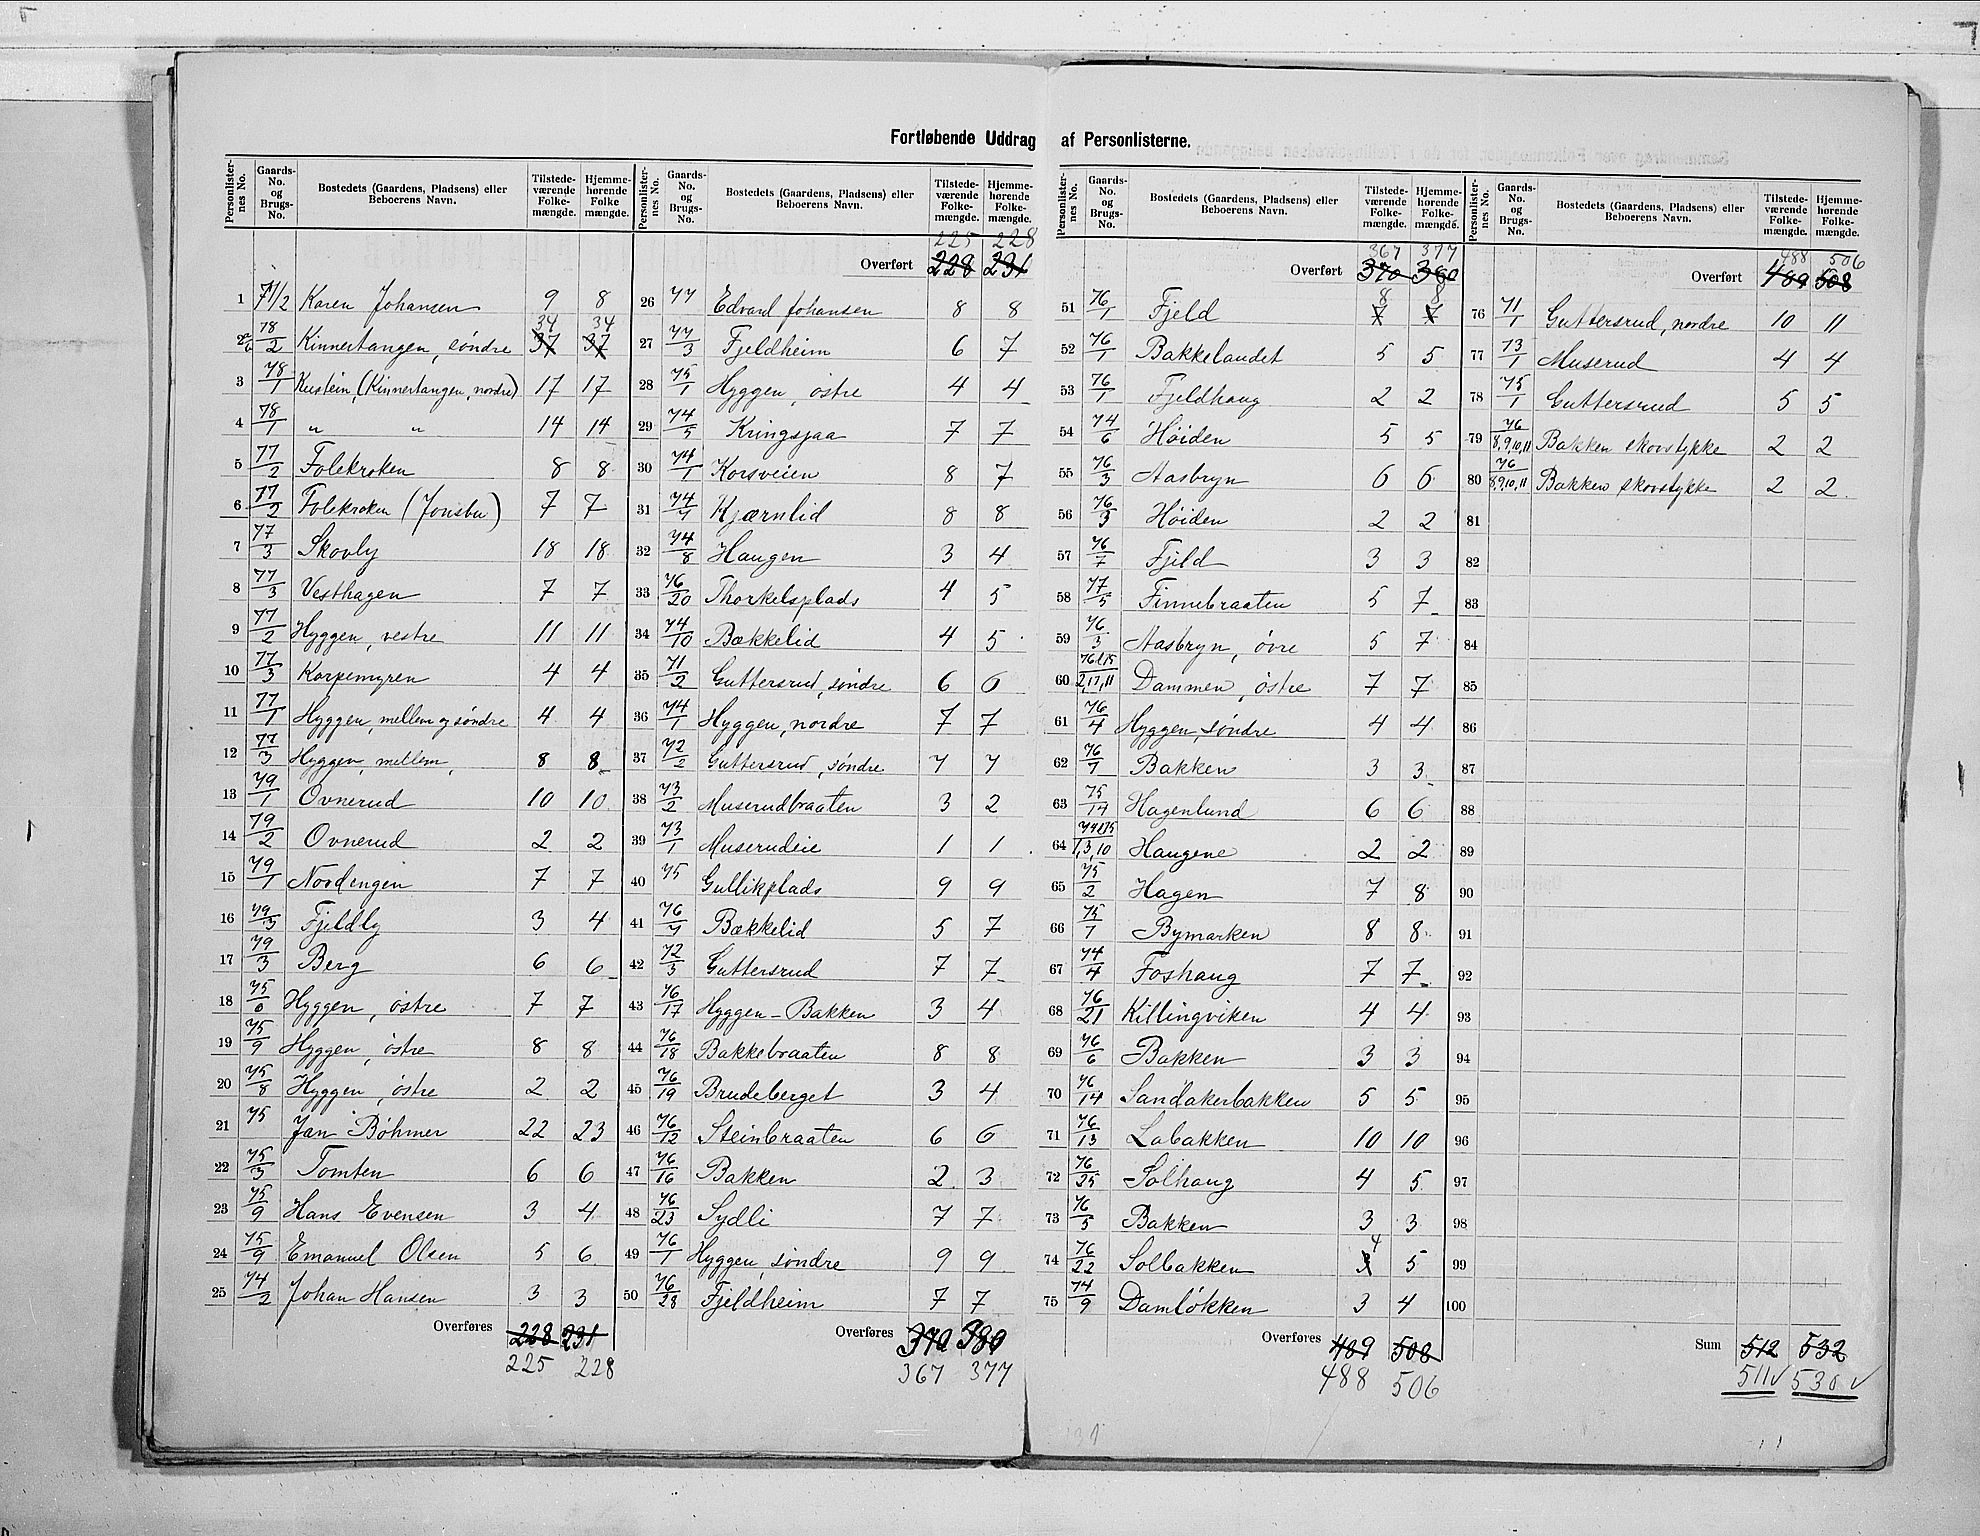 Fortløbende Uddrag af Personlisterne.
Personlister-nes No. | Gaards-No. og Brugs-No. | Bostedets (Gaardens, Pladsens) eller Beboerens Navn. | Tilstede-værende Folke-mængde. | Hjemme-hørende Folke mængde.
1 | 71/2 | Karen Johansen | 9 | 8
2 | 78/2 | Kinnertangen, søndre | 37 34 | 37 34
3 | 78/1 | Kustein, (Kinnertangen, nordre) | 17 | 17
4 | 78/1 | " " | 14 | 14
5 | 77/2 | Folekroken | 8 | 8
6 | 77/2 | Folekroken (Jonsbu) | 7 | 7
7 | 77/3 | Skovly | 18 | 18
8 | 77/3 | Vesthagen | 7 | 7
9 | 77/2 | Hyggen, vestre | 11 | 11
10 | 77/3 | Korpemyren | 4 | 4
11 | 77/1 | Hyggen, mellem og søndre | 4 | 4
12 | 77/3 | Hyggen, mellem, | 8 | 8
13 | 79/1 | Ovnerud | 10 | 10
14 | 79/2 | Ovnerud | 2 | 2
15 | 79/1 | Nordengen | 7 | 7
16 | 79/3 | Fjeldly | 3 | 4
17 | 79/3 | Berg | 6 | 6
18 | 75/6 | Hyggen, østre | 7 | 7
19 | 75/9 | Hyggen, østre | 8 | 8
20 | 75/8 | Hyggen, østre | 2 | 2
21 | 75 | Jan Bøhmer | 22 | 23
22 | 75/3 | Tomten | 6 | 6
23 | 75/9 | Hans Evensen | 3 | 4
24 | 75/9 | Emanuel Olsen | 5 | 6
25 | 74/2 | Johan Hansen | 3 | 3
Overføres 228 231
225 228
Personlister-nes No. | Gaards-No. og Brugs-No. | Bostedets (Gaardens, Pladsens) eller Beboerens Navn. | Tilstede-værende Folke-mængde. | Hjemme-hørende Folke-mængde.
225 228
Overført 228 231
26 | 77 | Edvard Johansen | 8 | 8
27 | 77/3 | Fjeldheim | 6 | 7
28 | 75/1 | Hyggen, østre | 4 | 4
29 | 74/5 | Kringsjaa | 7 | 7
30 | 74/1 | Korsveien | 8 | 7
31 | 74/7 | Kjærnlid | 8 | 8
32 | 74/8 | Haugen | 3 | 4
33 | 76/20 | Thorkelsplads | 4 | 5
34 | 74/10 | Bækkelid | 4 | 5
35 | 71/2 | Guttersrud, søndre | 6 | 6
36 | 74/1 | Hyggen, nordre | 7 | 7
37 | 72/2 | Guttersrud, søndre | 7 | 7
38 | 73/2 | Muserudbraaten | 3 | 2
39 | 73/1 | Muserudeie | 1 | 1
40 | 75 | Gullikplads | 9 | 9
41 | 76/7 | Bækkelid | 5 | 7
42 | 72/3 | Guttersrud | 7 | 7
43 | 76/17 | Hyggen-Bakken | 3 | 4
44 | 76/18 | Bakkebraaten | 8 | 8
45 | 76/19 | Brudeberget | 3 | 4
46 | 76/12 | Steinbraaten | 6 | 6
47 | 76/16 | Bakken | 2 | 3
48 | 76/23 | Sydli | 7 | 7
49 | 76/1 | Hyggen, søndre | 9 | 9
50 | 76/28 | Fjeldheim | 7 | 7
Overføres 370 380
367 377
Personlister-nes No. | Gaards-No. og Brugs-No. | Bostedets (Gaardens, Pladsens) eller Beboerens Navn. | Tilstede-værende Folke-mængde. | Hjemme-hørende Folke-mængde.
367 377
Overført 370 380
51 | 76/1 | Fjeld | 7 8 | 7 8
52 | 76/1 | Bakkelandet | 5 | 5
53 | 76/1 | Fjeldhaug | 2 | 2
54 | 74/6 | Høiden | 5 | 5
55 | 76/3 | Aasbryn | 6 | 6
56 | 76/3 | Høiden | 2 | 2
57 | 76/7 | Fjeld | 3 | 3
58 | 77/5 | Finnebraaten | 5 | 7
59 | 76/3 | Aasbryn, øvre | 5 | 7
60 | 2,17,11 | Dammen, østre | 7 | 7
61 | 76/4 | Hyggen, søndre | 4 | 4
62 | 76/7 | Bakken | 3 | 3
63 | 75/14 | Hagenlund | 6 | 6
64 | 1,3,10 | Haugene | 2 | 2
65 | 75/2 | Hagen | 7 | 8
66 | 75/7 | Bymarken | 8 | 8
67 | 74/4 | Foshaug | 7 | 7
68 | 76/21 | Killingviken | 4 | 4
69 | 76/6 | Bakken | 3 | 3
70 | 76/14 | Sandakerbakken | 5 | 5
71 | 76/13 | Labakken | 10 | 10
72 | 76/25 | Solhaug | 4 | 5
73 | 76/5 | Bakken | 3 | 3
74 | 76/22 | Solbakken | 3 4 | 5
75 | 74/9 | Damløkken | 3 | 4
Overføres 489 508
488 506
Personlister-nes No. | Gaards-No. og Brugs-No. | Bostedets (Gaardens, Pladsens) eller Beboerens Navn. | Tilstede-værende Folke-mængde. | Hjemme-hørende Folke-mængde.
488 506
Overført 489 508
76 | 71/1 | Guttersrud, nordre | 10 | 11
77 | 73/1 | Muserud | 4 | 4
78 | 75/1 | Guttersrud | 5 | 5
79 | 76/8,9,10,11 | Bakken skovstykke | 2 | 2
80 | 76/8,9,10,11 | Bakken skovstykke | 2 | 2
81
82
83
84
85
86
87
88
89
90
91
92
93
94
95
96
97
98
99
100
Sum 512 532
511 530